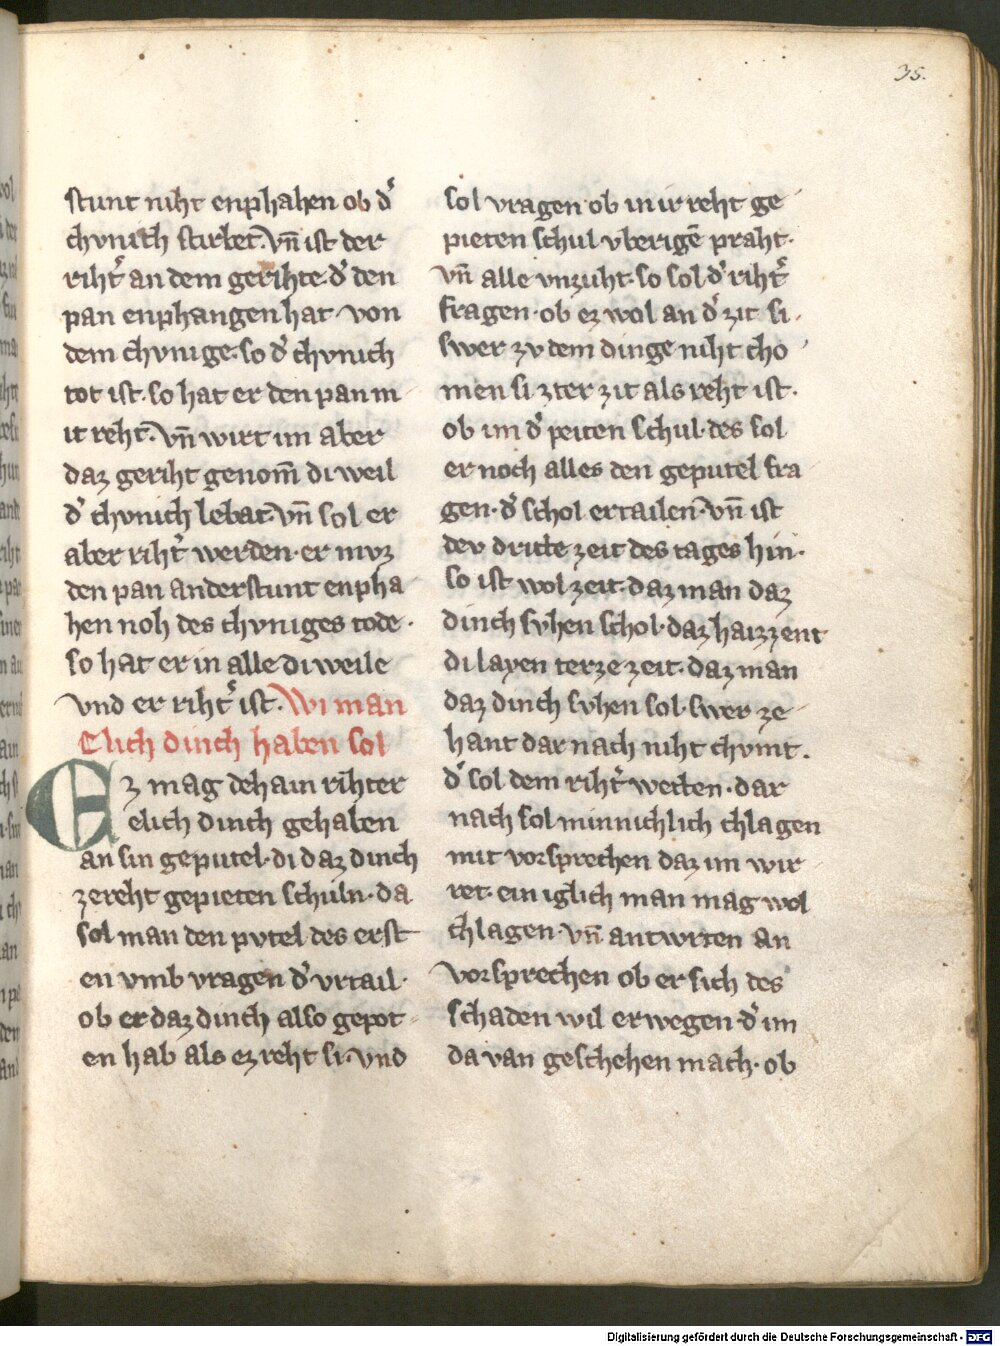 35.
stunt niht enphahen ob d᷑
chvnich stirbet. vn̄ ist der
riht᷑ an dem gerihte. d᷑ den
pan enphangen hat. von
dem chvnige. so d᷑ chvnich
tot ist. so hat er den pan m
it reht. vn̄ wirt im aber
daz geriht genom̄ di weil
d᷑ chvnich lebat. vn̄ sol er
aber riht᷑ werden. er mvz
den pan anderstunt enpha
hen noh des chvniges tode.
so hat er in alle di weile
vnd er riht᷑ ist. Wi man
Elich dinch haben sol
Ez mag dehain rihter
elich dinch gehaben
an sin geputel. di daz dinch
zereht gepieten schuln. da
sol man den pvtel des erst
en vmb vragen d᷑ vrtail.
ob er daz dinch also gepot
en hab als ez reht si. vnd
sol vragen ob in ir reht ge
pieten schul vberigē praht.
vn̄ alle vnzuht. so sol d᷑ riht᷑
fragen. ob ez wol an d᷑ zit si.
swer zv dem dinge niht cho
men si zter zit als reht ist.
ob im d᷑ peiten schul. des sol
er noch alles den geputel fra
gen. d᷑ schol ertailen. vn̄ ist
dev dritte zeit des tages hin.
so ist wol zeit. daz man daz
dinch svhen schol. daz haizzent
di layen terze zeit. daz man
daz dinch svhen sol. swer ze
hant dar nach niht chvmt.
d᷑ sol dem riht᷑ wetten. dar
nach sol minnichlich chlagen
mit vorsprechen daz im wir
ret. ein iglich man mag wol
chlagen. vn̄ antwrten an
vorsprechen ob er sich des
schaden wil erwegen. d᷑ im
da van geschehen mach. ob
Digitalisierung gefördert durch die Deutsche Forschungsgemeinschaft - DFG